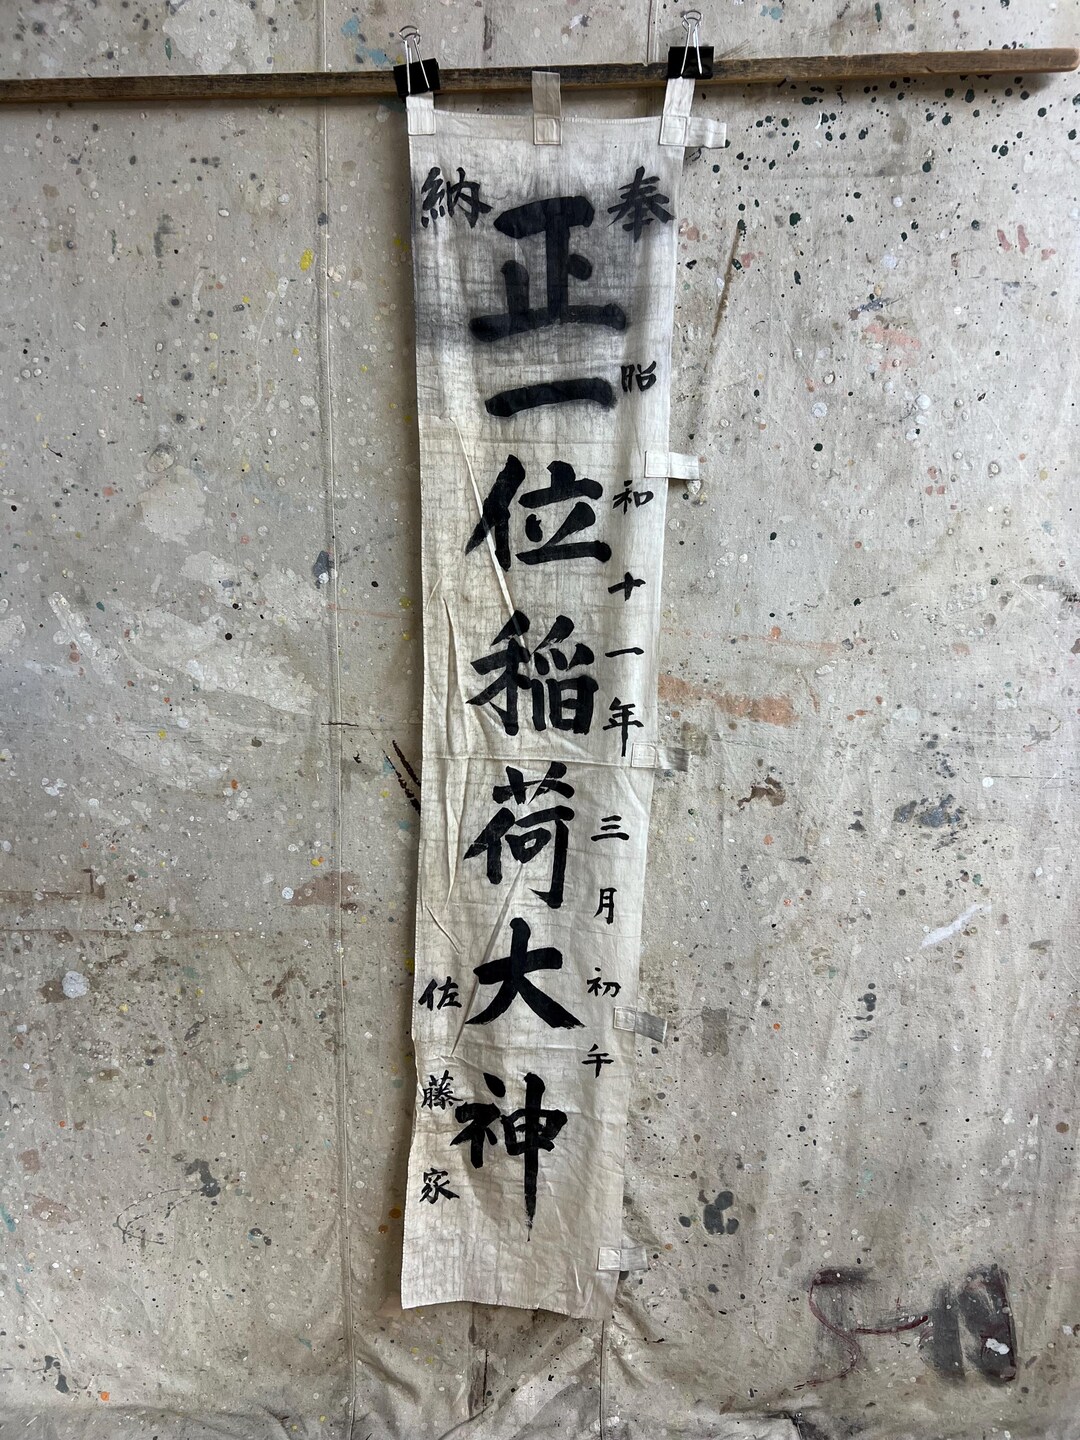 奉納
昭和十一年三月初午
正一位稲荷大神
佐藤家